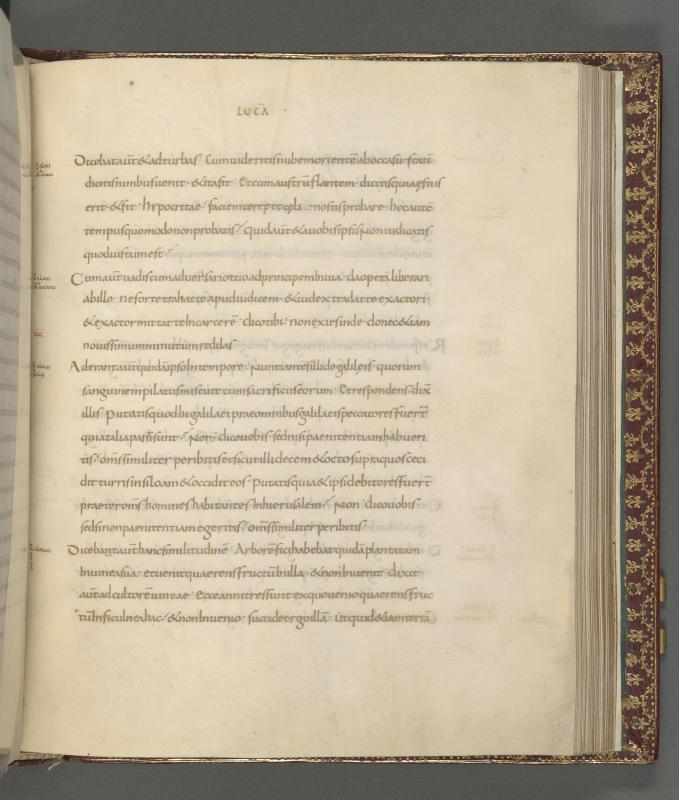 LUCĀ
Dicebat aut̄ & ad turbas Cum uideritis nubem orientē ab occasu stati
dicitis nimbus uenit · & ita fit Et cum austrū flantem dicitis quia ęstus
erit · & fit hypocritae faciem terrę et cęli nostis probare hoc autē
tempus quomodo non probatis quid aut̄ & a uobis ipsis Non iudicatis
quod iustum est
Cum aut̄ uadis cum aduersario tuo ad principem In uia da operā liberari
ab illo ne forte trahat te apud iudicem · & iudex tradat te exactori
& exactor mittat te In carcerē dico tibi · non exies inde · donec &iam
nouissimum minutum reddas
Aderant aut̄ quidā ipso In tempore · Nuntiantes illi de galileis · quorum
sanguinem pilatus miscuit cum sacrificiis eorum Et respondens dix̄
illis · Putatis quod hi galilaei prae omnibus galilaeis peccatores fuer̄t
quia talia passi sunt · Non dico uobis · sed nisi paenitentiam habueri
tis · om̄s similiter peribitis et sicut illi decem & octo supra quos ceci
dit turris in siloam & occidit eos · Putatis quia & ipsi debitores fuer̄t
praeter om̄s homines habitantes In hierusalem Non dico uobis ·
sed si non paenitentiam egeritis · om̄s similiter peribitis ·
Dicebant aut̄ hanc similitudinē Arborē fici habebat quidā plantatam
In uinea sua et uenit quaerens fructū In illa & non Inuenit dixit
aut̄ ad cultorē uineae Ecce anni tres sunt ex quo uenio quaerens fruc
tū In ficulnea hac · & non Inuenio succide ergo illā Ut quid &iam terrā